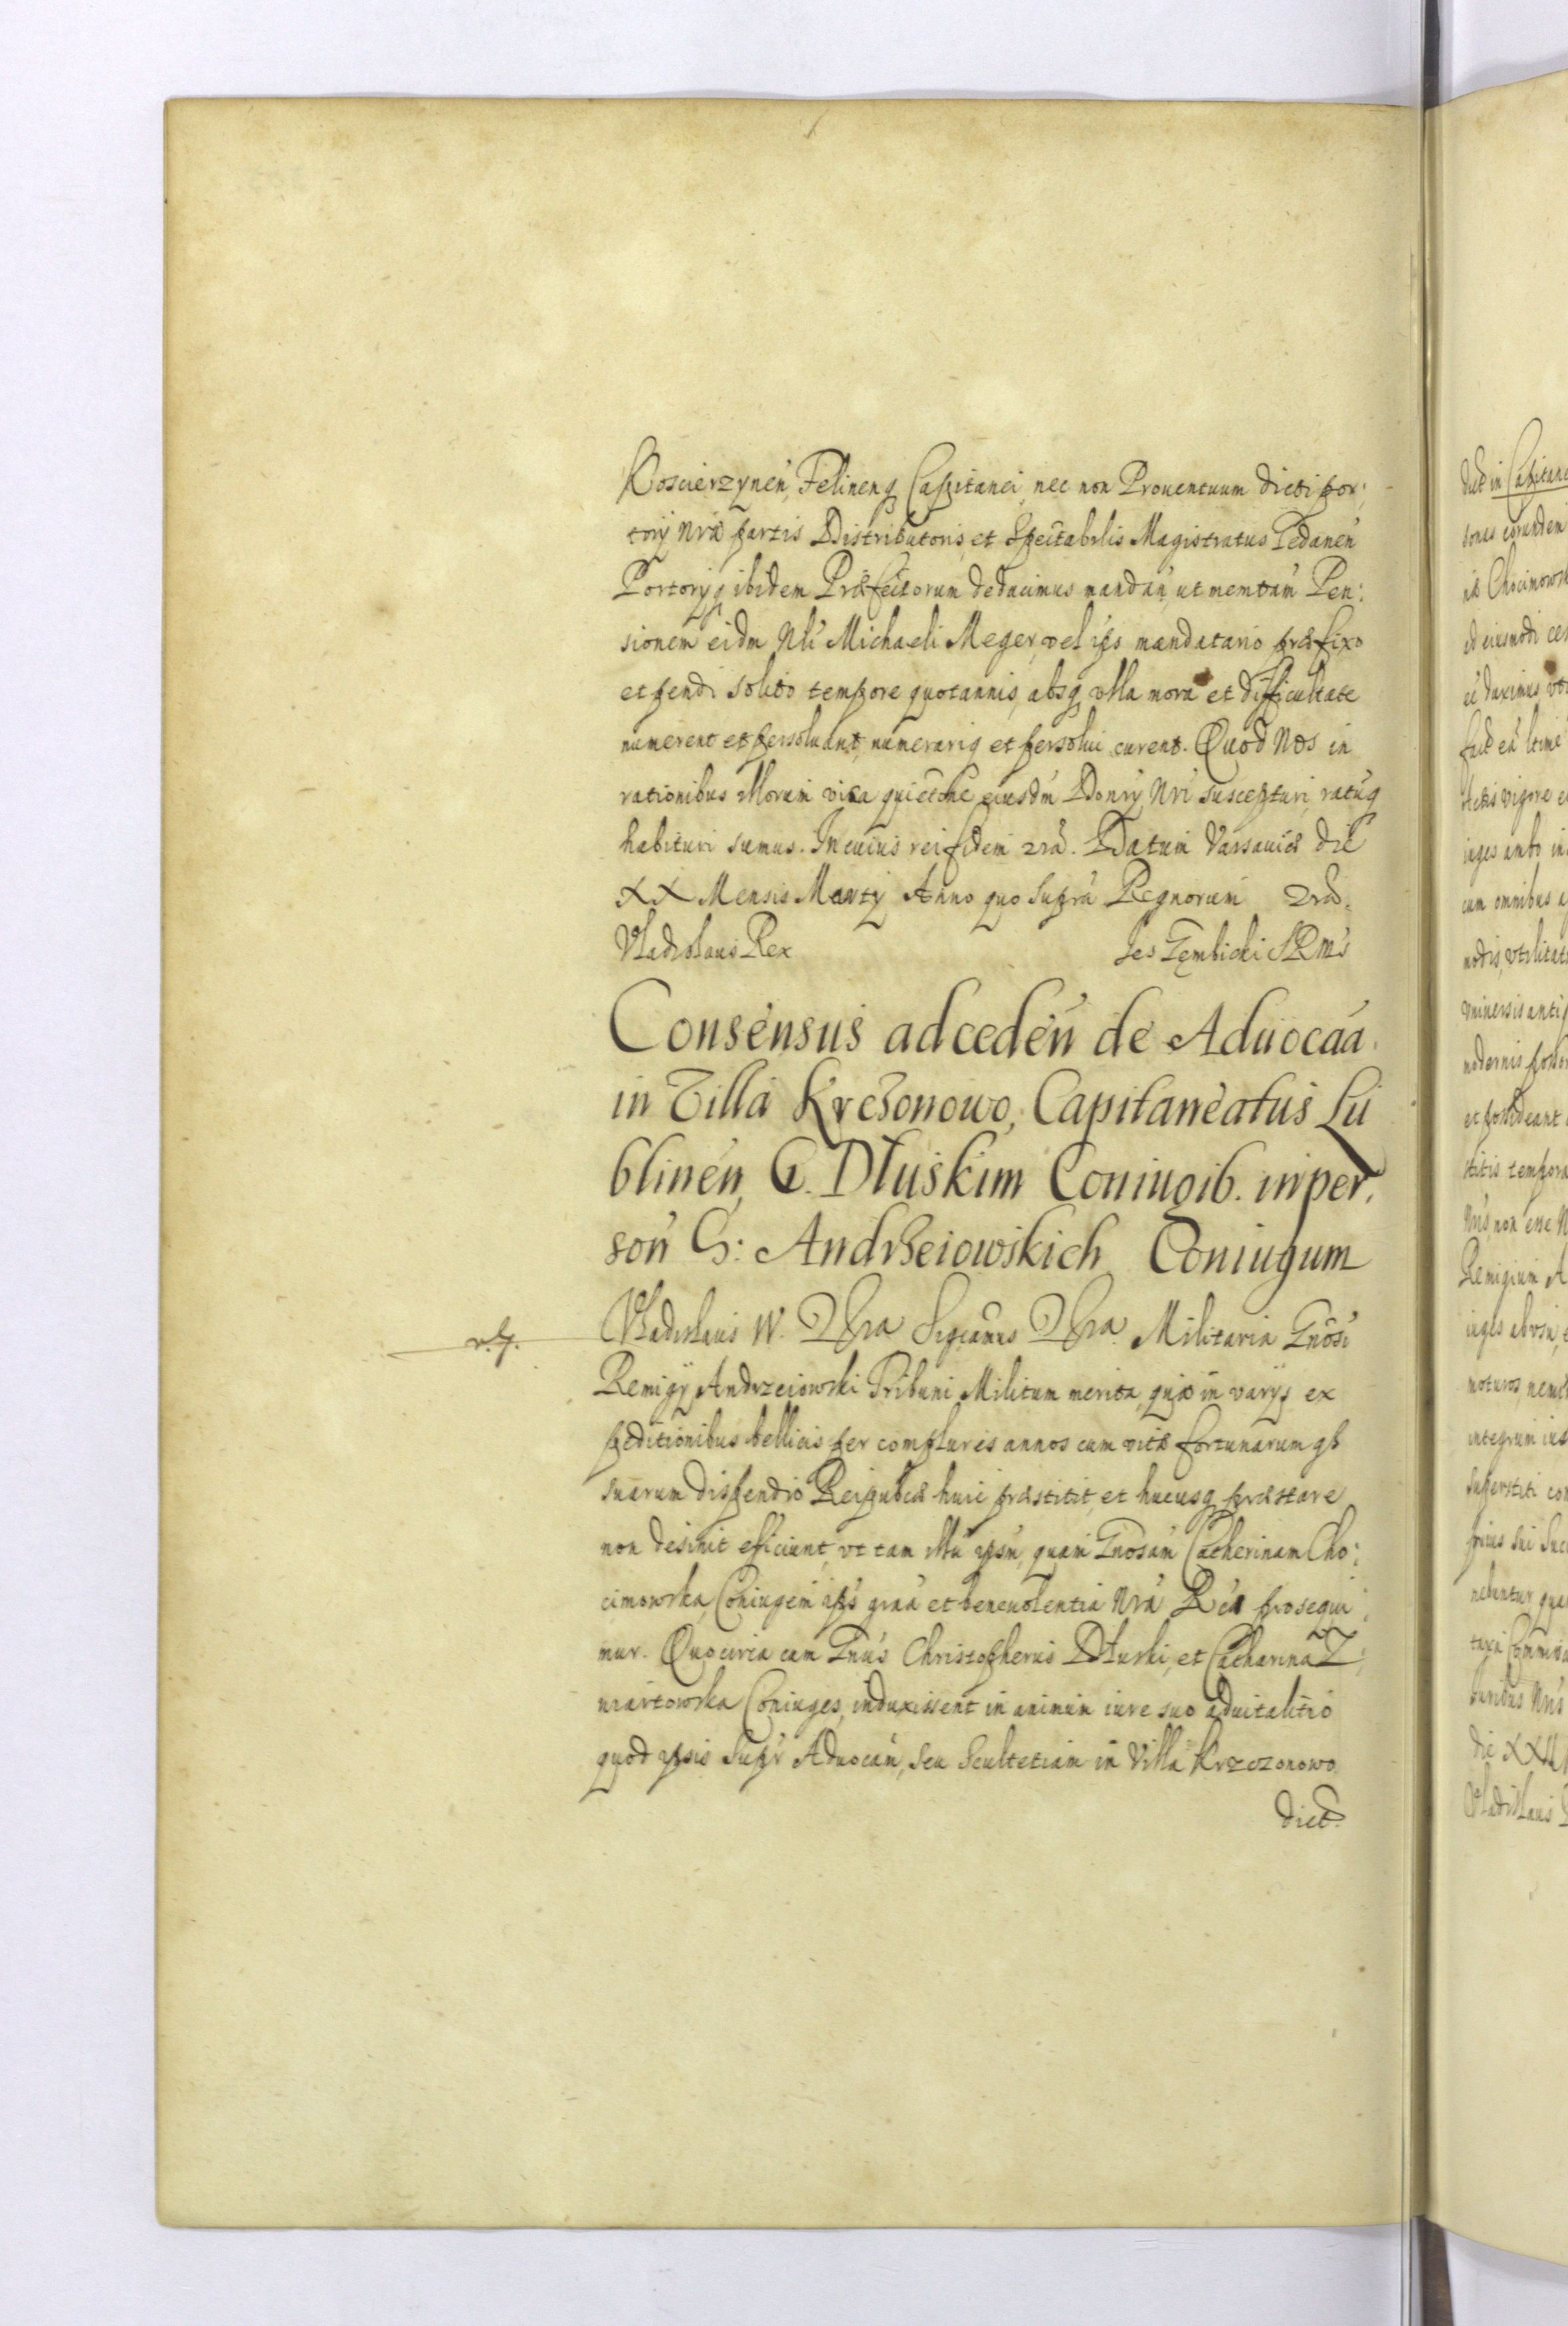 Koscierzynen, Felinenq Capitanei, nec non Prouentuum dicti por:
torij Nrae partis Distributoris, et Spectabilis Magistratus Gedanen
Portorijq ibidem Praefectorum deducimus mandan, ut memtam Pen:
sionem eidm Nli Michaeli Meger, vel ips mandatario praefixo
et pendi solito tempore quotannis, absq vlla mora et difficultate
numerent et persoluant, numerariq et persolui curent. Quod Nos in
rationibus illorum visa quietone eiusdm Donrij Nri suscepturi, ratuq
habituri sumus. In cuius rei fidem 2ra. Datum Varsauiae die
XX Mensis Martij Anno quo supra Regnorum 2ra.
Vladislaus Rex Jes Gembicki SRMs
Consensus ad ceden de Aduocaa
in Villa Krczonowo, Capitaneatus Lu
blinen, G. Dłuskim Coniugib. in per:
son G: Andrzeiowskich Coniugum
v. g.
Vladislaus IV. Dgra Significamus Dgra. Militaria Gnosi
Remigij Andrzeiowski Tribuni Militum merita, quae in varijs ex
peditionibus bellicis per complures annos cum vitae fortunarumqz
suarum dispendio Reipublcae huic praestitit, et hucusq praestare
non desinit efficiunt, vt tam illu ipsu, quam Gnosam Catherinam Cho:
cimowska, Coniugem ips graa et beneuolentia Nra Rea prosequi
mur. Quocirca cum Gnus Christopherus Dłuski, et Catharina Z:
miartowska Coniuges, induxissent in animum iure suo aduitalitio
quod ipsis supr Aduocan, seu Scultetiam in Villa Krzczonowo
dict